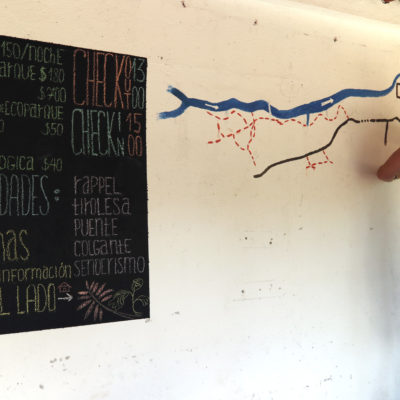 150/noche
arque $180
$700
ecoparque
0 $50
ógica $40
DADES:
nas
información
L LADO
CHECK OUT 13 00
CHECK IN 15 00
RAPPEL
TIROLESA
PUENTE
COLGANTE
SENDERISMO